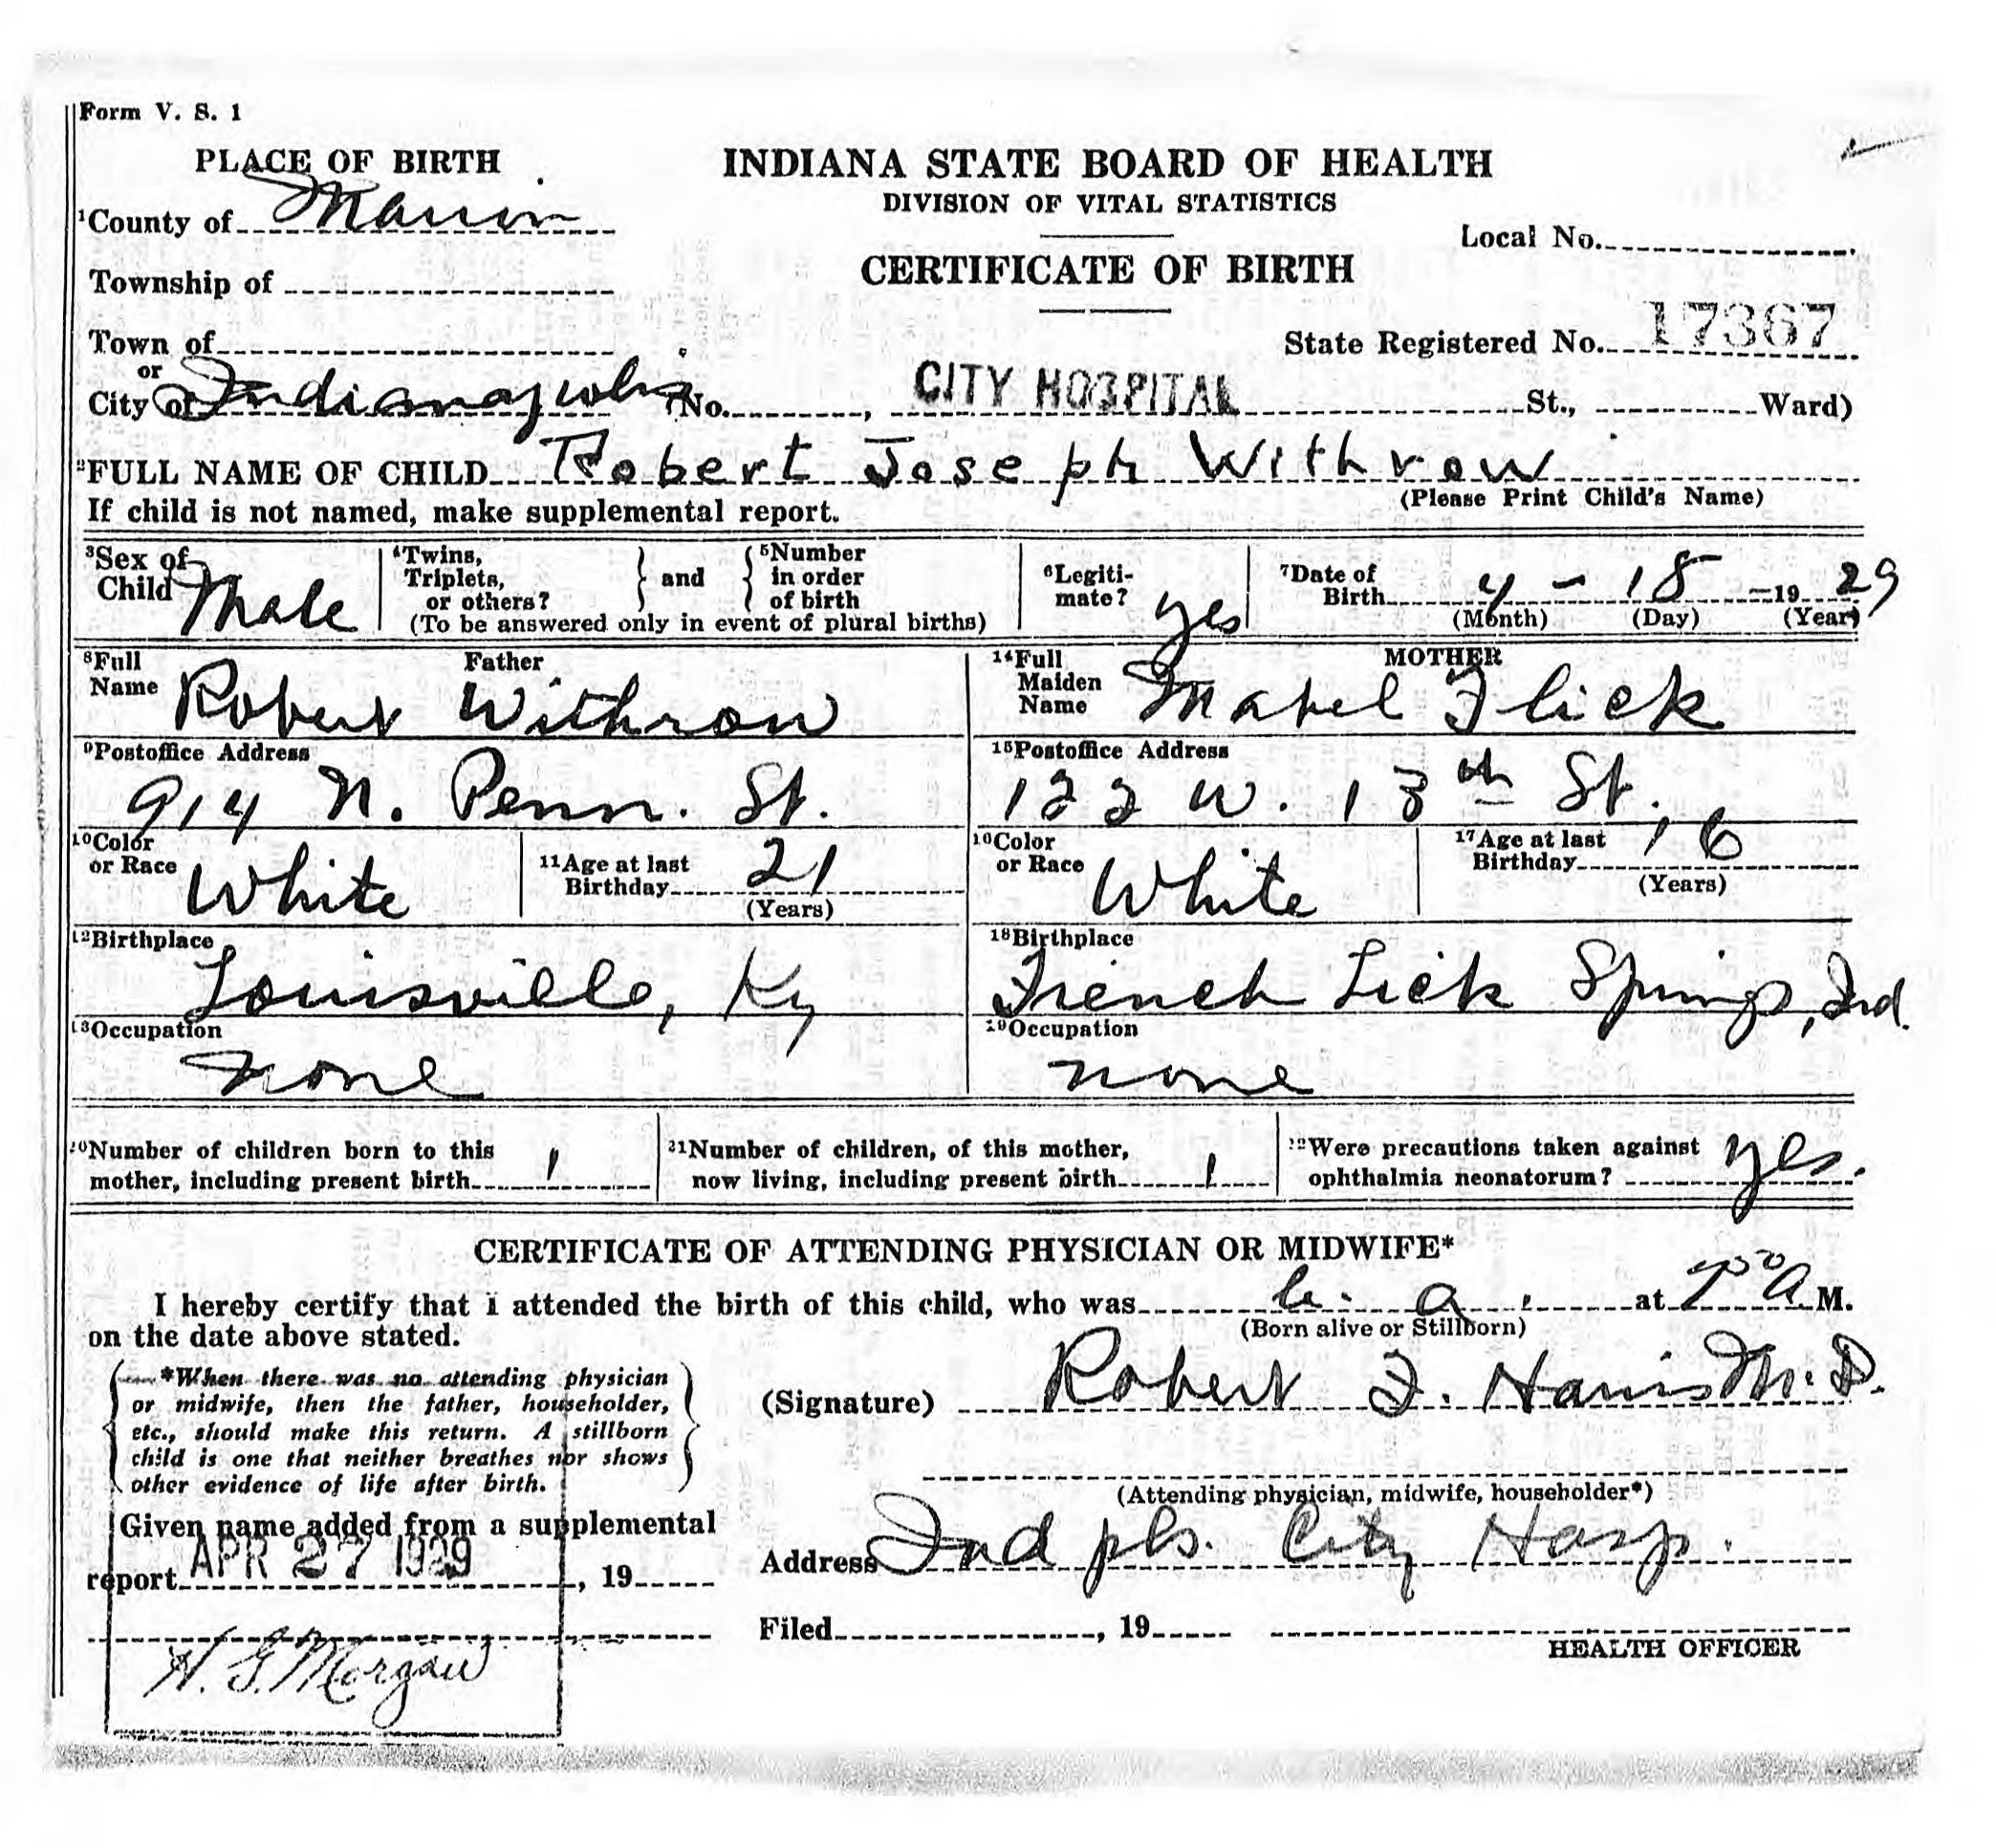 Form V. S. 1
PLACE OF BIRTH
INDIANA STATE BOARD OF HEALTH
DIVISION OF VITAL STATISTICS
1County of Marion
Local No.
Township of
CERTIFICATE OF BIRTH
Town of
State Registered No. 17367
or
City of Indianapolis (No. , CITY HOSPITAL St., Ward)
2FULL NAME OF CHILD Robert Joseph Withrow
(Please Print Child's Name)
If child is not named, make supplemental report.
3Sex of Child Male
4Twins, Triplets, or others? } and { 5Number in order of birth
(To be answered only in event of plural births)
6Legitimate? yes
7Date of Birth 4 - 18 - 1929
(Month) (Day) (Year)
8Full Name Father
Robert Withrow
14Full Maiden Name MOTHER
Mabel Flick
9Postoffice Address
914 N. Penn. St.
15Postoffice Address
122 W. 13th St.
10Color or Race White
11Age at last Birthday 21
(Years)
16Color or Race White
17Age at last Birthday 16
(Years)
12Birthplace
Louisville, Ky
18Birthplace
French Lick Springs, Ind.
13Occupation
none
19Occupation
none
20Number of children born to this mother, including present birth 1
21Number of children, of this mother, now living, including present birth 1
22Were precautions taken against ophthalmia neonatorum? yes.
CERTIFICATE OF ATTENDING PHYSICIAN OR MIDWIFE*
I hereby certify that I attended the birth of this child, who was b. a. at A M.
(Born alive or Stillborn)
on the date above stated.
*When there was no attending physician
or midwife, then the father, householder,
etc., should make this return. A stillborn
child is one that neither breathes nor shows
other evidence of life after birth.
(Signature) Robert F. Harris M.D.
(Attending physician, midwife, householder*)
Given name added from a supplemental
report APR 27 1929, 19
Address Ind pls. City Hosp.
Filed , 19
HEALTH OFFICER
H. G. Morgan